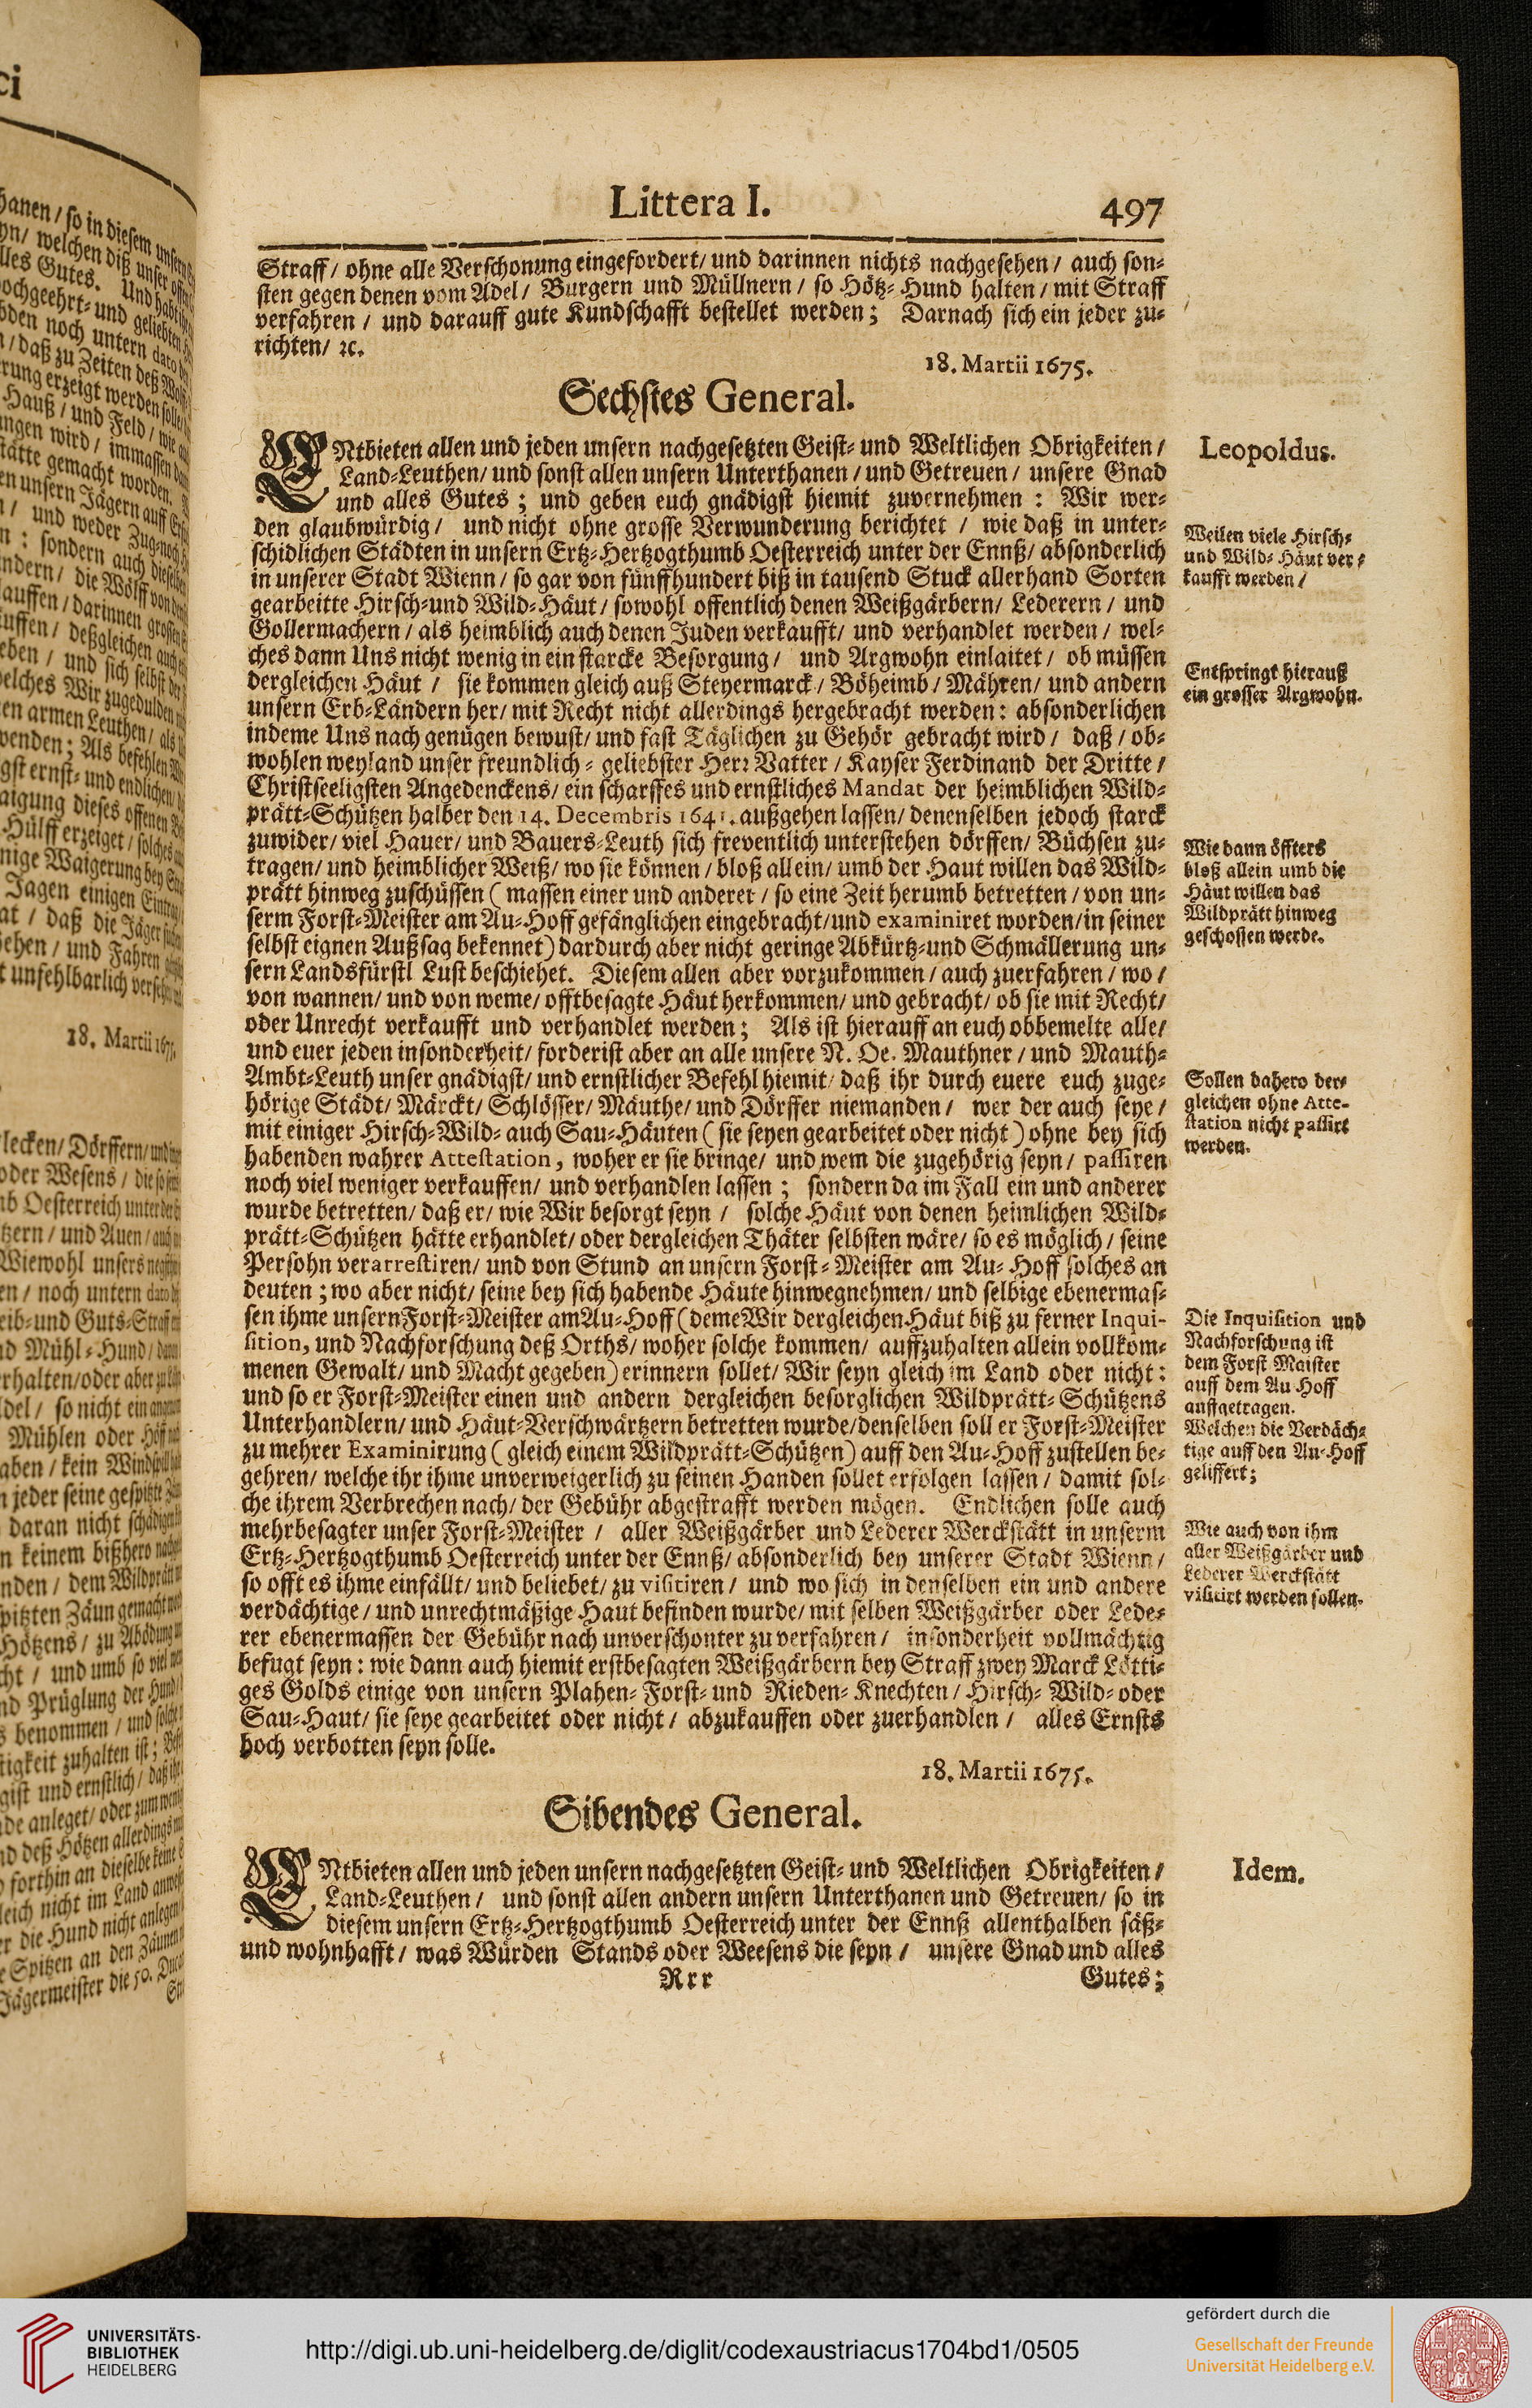 Littera I. 497
Straff/ ohne alle Verschonung eingefordert/ und darinnen nichts nachgesehen/ auch son-
sten gegen denen vom Adel/ Burgern und Müllnern/ so Hötz-Hund halten/ mit Straff
verfahren/ und darauff gute Kundschafft bestellet werden; Darnach sich ein jeder zu-
richten/ ꝛc.
18. Martii 1675.
Sechstes General.
ENtbieten allen und jeden unsern nachgesetzten Geist- und Weltlichen Obrigkeiten/
Land-Leuthen/ und sonst allen unsern Unterthanen/ und Getreuen/ unsere Gnad
und alles Gutes; und geben euch gnädigst hiemit zuvernehmen: Wir wer-
den glaubwürdig/ und nicht ohne grosse Verwunderung berichtet/ wie daß in unter-
schidlichen Städten in unsern Ertz-Hertzogthumb Oesterreich unter der Ennß/ absonderlich
in unserer Stadt Wienn/ so gar von fünffhundert biß in tausend Stuck allerhand Sorten
gearbeitte Hirsch-und Wild-Häut/ sowohl offentlich denen Weißgärbern/ Lederern/ und
Gollermachern/ als heimblich auch denen Juden verkaufft/ und verhandlet werden/ wel-
ches dann Uns nicht wenig in ein starcke Besorgung/ und Argwohn einlaitet/ ob müssen
dergleichen Häut/ sie kommen gleich auß Steyermarck/ Böheimb/ Mähren/ und andern
unsern Erb-Ländern her/ mit Recht nicht allerdings hergebracht werden: absonderlichen
indeme Uns nach genügen bewust/ und fast Täglichen zu Gehör gebracht wird/ daß/ ob-
wohlen weyland unser freundlich-geliebster Herr Vatter/ Kayser Ferdinand der Dritte/
Christseeligsten Angedenckens/ ein scharffes und ernstliches Mandat der heimblichen Wild-
prätt-Schützen halber den 14. Decembris 1641. außgehen lassen/ denenselben jedoch starck
zuwider/ viel Hauer/ und Bauers-Leuth sich freventlich unterstehen dörffen/ Büchsen zu-
tragen/ und heimblicher Weiß/ wo sie können/ bloß allein/ umb der Haut willen das Wild-
prätt hinweg zuschüssen (massen einer und anderer/ so eine Zeit herumb betretten/ von un-
serm Forst-Meister am Au-Hoff gefänglichen eingebracht/und examiniret worden/in seiner
selbst eignen Außsag bekennet) dardurch aber nicht geringe Abkürtz-und Schmällerung un-
sern Landsfürstl Lust beschiehet. Diesem allen aber vorzukommen/ auch zuerfahren/ wo/
von wannen/ und von weme/ offtbesagte Häut herkommen/ und gebracht/ ob sie mit Recht/
oder Unrecht verkaufft und verhandlet werden; Als ist hierauff an euch obbemelte alle/
und euer jeden insonderheit/ forderist aber an alle unsere N. Oe. Mauthner/ und Mauth-
Ambt-Leuth unser gnädigst/ und ernstlicher Befehl hiemit/ daß ihr durch euere euch zuge-
hörige Städt/ Märckt/ Schlösser/ Mäuthe/ und Dörffer niemanden/ wer der auch seye/
mit einiger Hirsch-Wild-auch Sau-Häuten (sie seyen gearbeitet oder nicht) ohne bey sich
habenden wahrer Attestation, woher er sie bringe/ und wem die zugehörig seyn/ passiren
noch viel weniger verkauffen/ und verhandlen lassen; sondern da im Fall ein und anderer
wurde betretten/ daß er/ wie Wir besorgt seyn/ solche Häut von denen heimlichen Wild-
prätt-Schützen hätte erhandlet/ oder dergleichen Thäter selbsten wäre/ so es möglich/ seine
Persohn verarrestiren/ und von Stund an unsern Forst-Meister am Au-Hoff solches an
deuten; wo aber nicht/ seine bey sich habende Häute hinwegnehmen/ und selbige ebenermas-
sen ihme unsern Forst-Meister am Au-Hoff (deme Wir dergleichen Häut biß zu ferner Inqui-
sition, und Nachforschung deß Orths/ woher solche kommen/ auffzuhalten allein vollkom-
menen Gewalt/ und Macht gegeben) erinnern sollet/ Wir seyn gleich im Land oder nicht:
und so er Forst-Meister einen und andern dergleichen besorglichen Wildprätt-Schützens
Unterhandlern/ und Häut-Verschwärtzern betretten wurde/denselben soll er Forst-Meister
zu mehrer Examinirung (gleich einem Wildprätt-Schützen) auff den Au-Hoff zustellen be-
gehren/ welche ihr ihme unverweigerlich zu seinen Handen sollet erfolgen lassen/ damit sol-
che ihrem Verbrechen nach/ der Gebühr abgestrafft werden mögen. Endlichen solle auch
mehrbesagter unser Forst-Meister/ aller Weißgärber und Lederer Werckstätt in unserm
Ertz-Hertzogthumb Oesterreich unter der Ennß/ absonderlich bey unserer Stadt Wienn/
so offt es ihme einfällt/ und beliebet/ zu visitiren/ und wo sich in denselben ein und andere
verdächtige/ und unrechtmäßige Haut befinden wurde/ mit selben Weißgärber oder Lede-
rer ebenermassen der Gebühr nach unverschonter zu verfahren/ insonderheit vollmächtig
befugt seyn: wie dann auch hiemit erstbesagten Weißgärbern bey Straff zwey Marck Lötti-
ges Golds einige von unsern Plahen-Forst-und Rieden-Knechten/ Hirsch-Wild-oder
Sau-Haut/ sie seye gearbeitet oder nicht/ abzukauffen oder zuerhandlen/ alles Ernsts
hoch verbotten seyn solle.
18. Martii 1675.
Sibendes General.
ENtbieten allen und jeden unsern nachgesetzten Geist-und Weltlichen Obrigkeiten/
Land-Leuthen/ und sonst allen andern unsern Unterthanen und Getreuen/ so in
diesem unsern Ertz-Hertzogthumb Oesterreich unter der Ennß allenthalben säß-
und wohnhafft/ was Würden Stands oder Weesens die seyn/ unsere Gnad und alles
Rrr Gutes;
Leopoldus.
Weilen viele Hirsch-
und Wild-Häut ver-
kaufft werden/
Entspringt hierauß
ein grosser Argwohn.
Wie dann öffters
bloß allein umb die
Häut willen das
Wildprätt hinweg
geschossen werde.
Sollen dahero der-
gleichen ohne Atte-
station nicht passirt
werden.
Die Inquisition und
Nachforschung ist
dem Forst Maister
auff dem Au Hoff
austgetragen.
Welchen die Verdäch-
tige auff den Au-Hoff
geliffert;
Wie auch von ihm
aller Weißgärber und
Lederer Werckstätt
visitirt werden sollen.
Idem.
UNIVERSITÄTS-
BIBLIOTHEK
HEIDELBERG
http://digi.ub.uni-heidelberg.de/diglit/codexaustriacus1704bd1/0505
gefördert durch die
Gesellschaft der Freunde
Universität Heidelberg e.V.